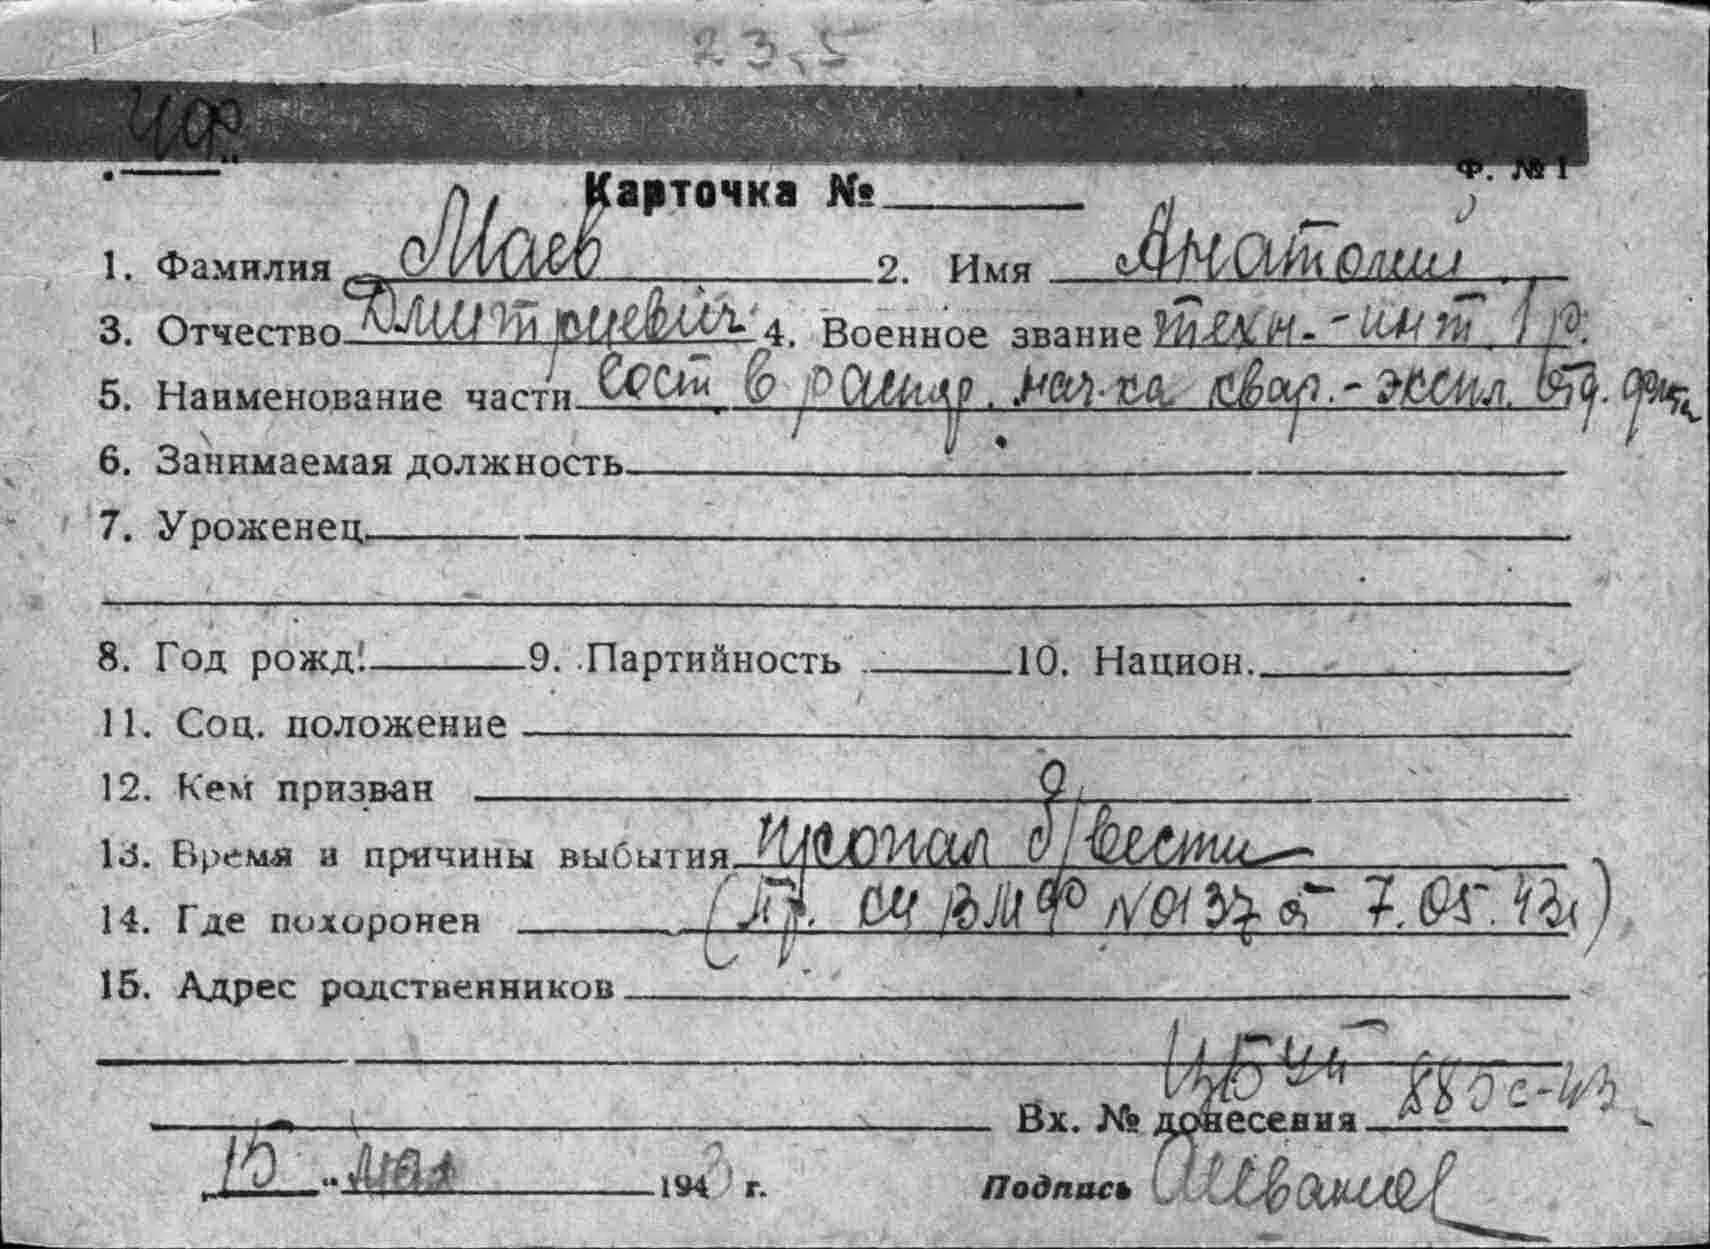 23,5
ЧФ
Ф. № 1
Карточка №
1. Фамилия Маев 2. Имя Анатолий
3. Отчество Дмитриевич 4. Военное звание техн.-инт. 1 р.
5. Наименование части сост в распор. нач-ка квар.-экспл. отд. флота
6. Занимаемая должность
7. Уроженец
8. Год рожд. 9. Партийность 10. Национ.
11. Соц. положение
12. Кем призван
13. Время и причины выбытия пропал б/вести
14. Где похоронен (Пр. СЧ ВМФ №0137 от 7.05.43г)
15. Адрес родственников
Вх. № донесения 885с-43
15 " мая 1943 г. Подпись